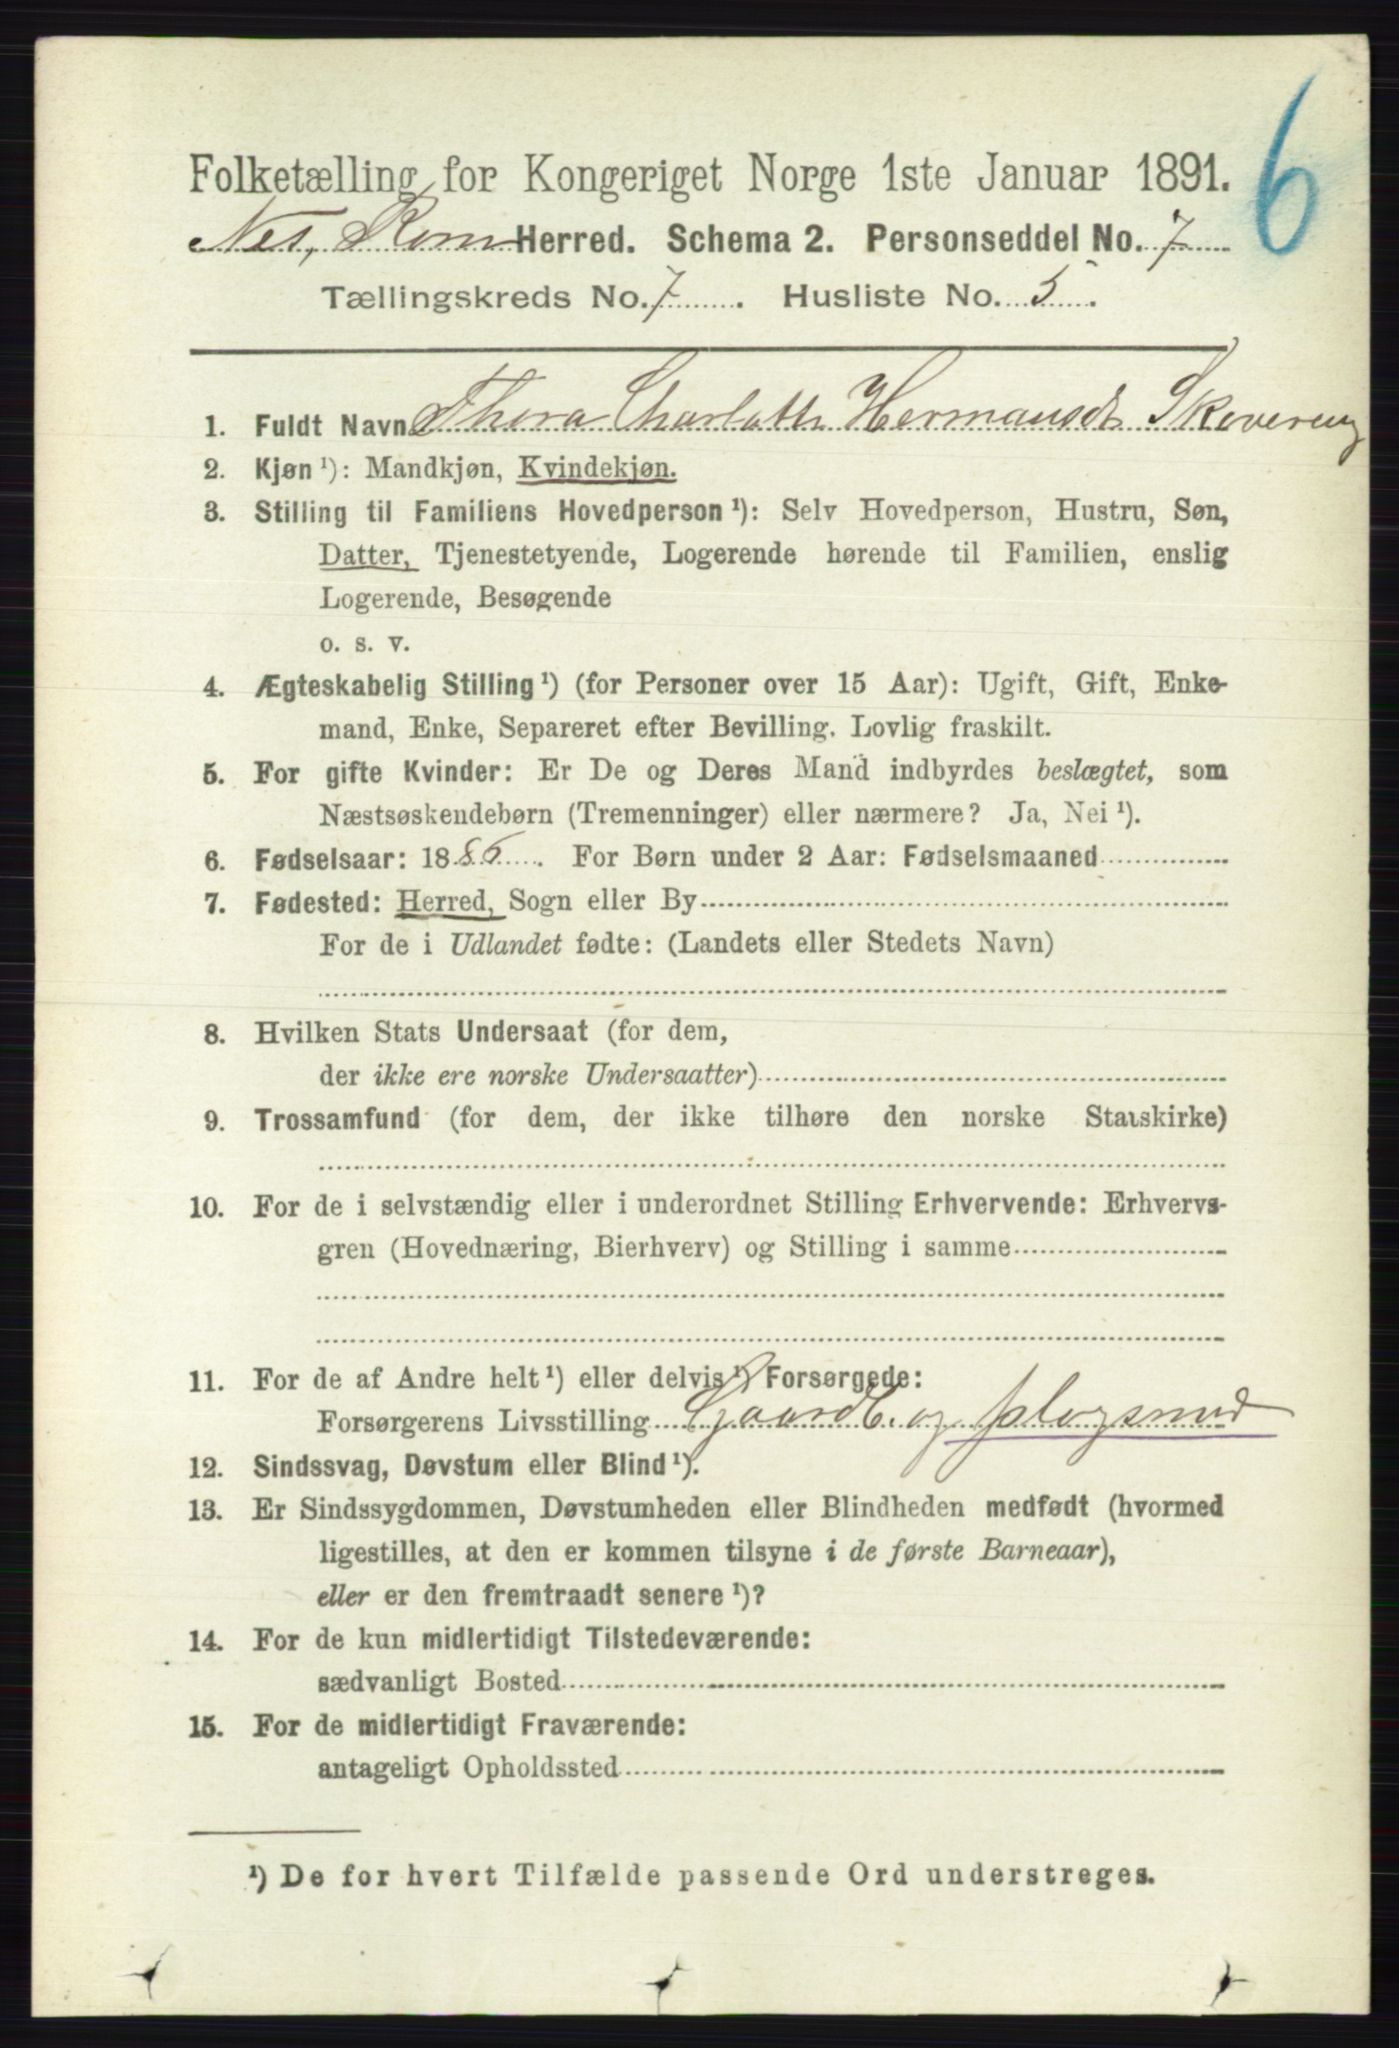 6
Folketælling for Kongeriget Norge 1ste Januar 1891.
Nes, Rom Herred. Schema 2. Personseddel No. 7
Tællingskreds No. 7. Husliste No. 5.
1. Fuldt Navn Thora Charlotte Hermansdt Skovereng
2. Kjøn ¹): Mandkjøn, Kvindekjøn.
3. Stilling til Familiens Hovedperson ¹): Selv Hovedperson, Hustru, Søn,
Datter, Tjenestetyende, Logerende hørende til Familien, enslig
Logerende, Besøgende
o. s. v.
4. Ægteskabelig Stilling ¹) (for Personer over 15 Aar): Ugift, Gift, Enke-
mand, Enke, Separeret efter Bevilling. Lovlig fraskilt.
5. For gifte Kvinder: Er De og Deres Mand indbyrdes beslægtet, som
Næstsøskendebørn (Tremenninger) eller nærmere? Ja, Nei ¹).
6. Fødselsaar: 1886. For Børn under 2 Aar: Fødselsmaaned
7. Fødested: Herred, Sogn eller By
For de i Udlandet fødte: (Landets eller Stedets Navn)
8. Hvilken Stats Undersaat (for dem,
der ikke ere norske Undersaatter)
9. Trossamfund (for dem, der ikke tilhøre den norske Statskirke)
10. For de i selvstændig eller i underordnet Stilling Erhvervende: Erhvervs-
gren (Hovednæring, Bierhverv) og Stilling i samme
11. For de af Andre helt ¹) eller delvis ¹) Forsørgede:
Forsørgerens Livsstilling Gaardb. og plogsmed
12. Sindssvag, Døvstum eller Blind ¹).
13. Er Sindssygdommen, Døvstumheden eller Blindheden medfødt (hvormed
ligestilles, at den er kommen tilsyne i de første Barneaar),
eller er den fremtraadt senere ¹)?
14. For de kun midlertidigt Tilstedeværende:
sædvanligt Bosted
15. For de midlertidigt Fraværende:
antageligt Opholdssted
¹) De for hvert Tilfælde passende Ord understreges.